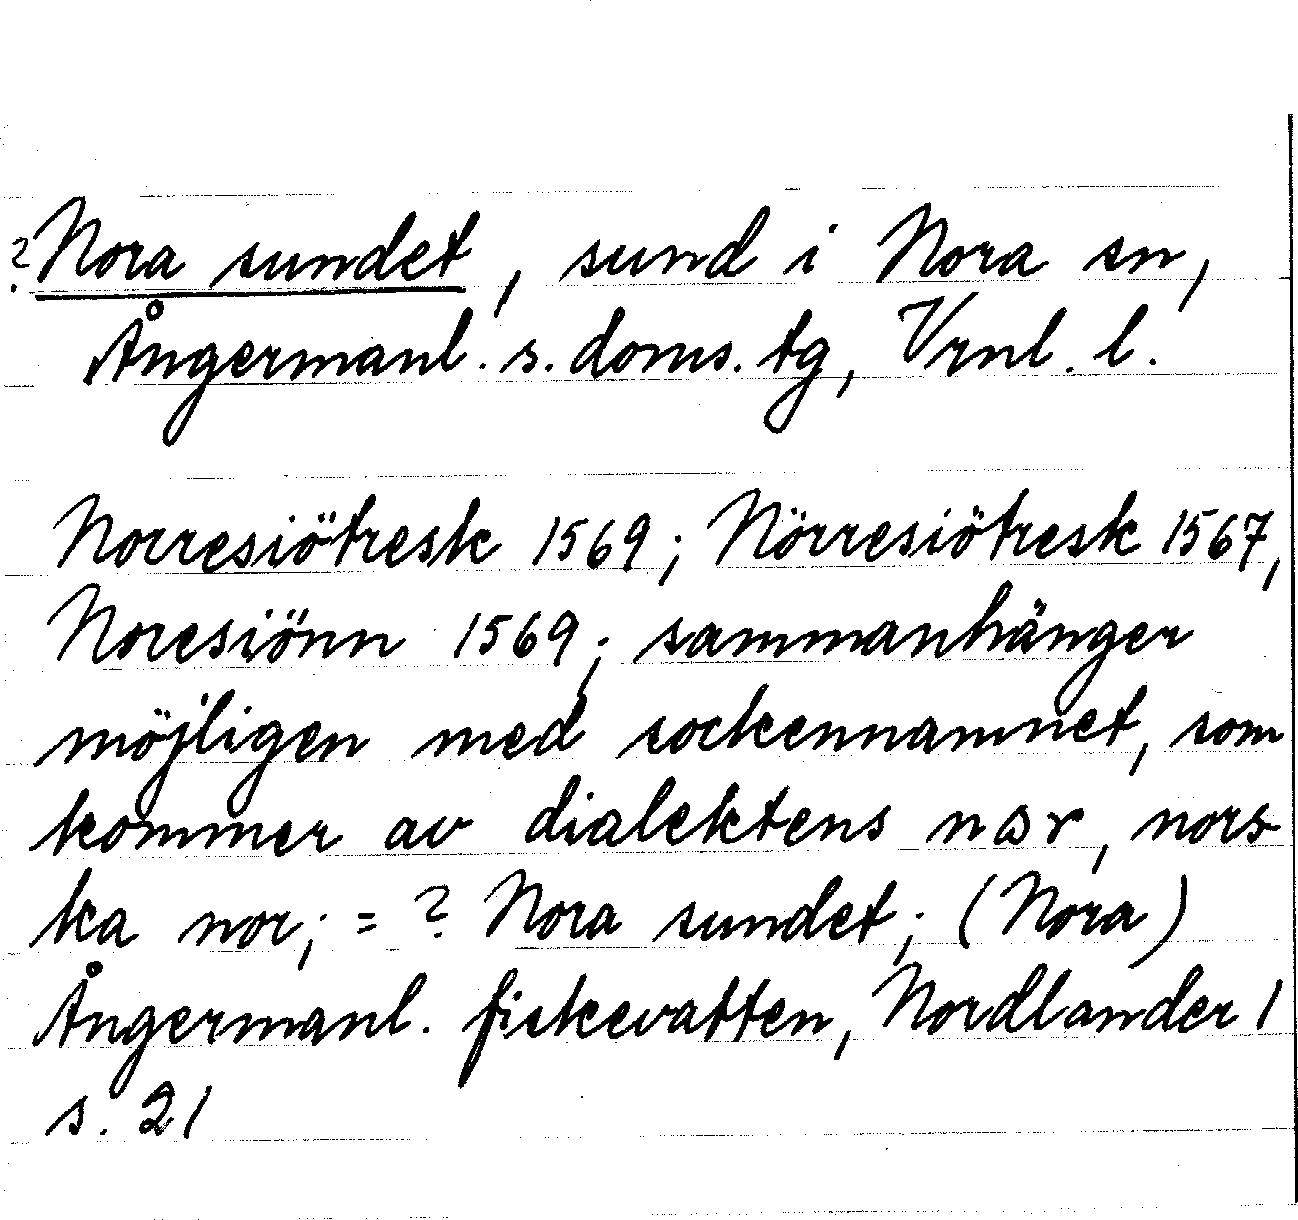 ? Nora sundet, sund i Nora sn,
Ångermanl. s. doms. tg, Vrnl. l.
Norresiötresk 1569; Nörresiötresk 1567,
Noresiönn 1569; sammanhänger
möjligen med sockennamnet, som
kommer av dialektens nɷr, nors
ka nor; = ? Nora sundet; (Nora)
Ångermanl. fiskevatten, Nordlander 1
s. 21